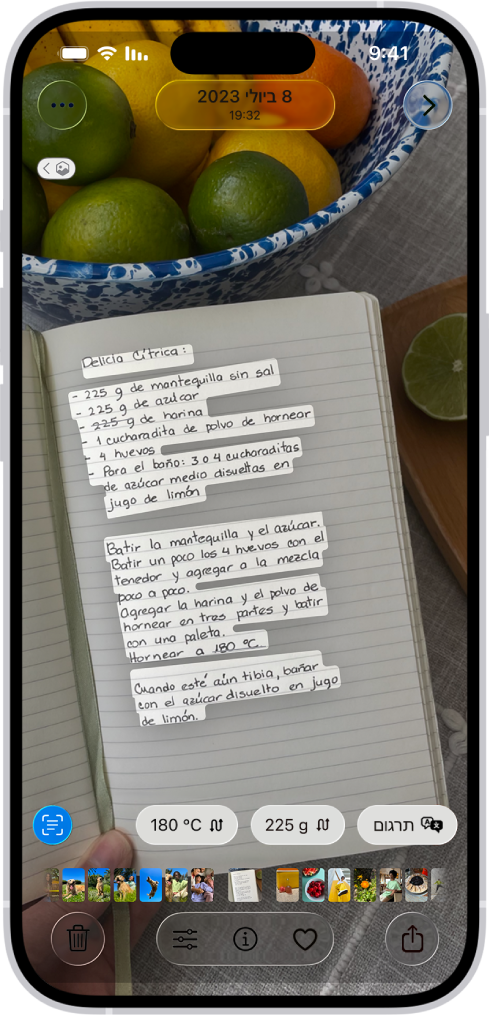 9:41
8 ביולי 2023
19:32
Delicia Cítrica:
- 225 g de mantequilla sin sal
- 225 g de azúcar
- 225 g de harina
- 1 cucharadita de polvo de hornear
- 4 huevos
- Para el baño: 3 o 4 cucharaditas
de azúcar medio disueltas en
jugo de limón
Batir la mantequilla y el azúcar.
Batir un poco los 4 huevos con el
tenedor y agregar a la mezcla
poco a poco.
Agregar la harina y el polvo de
hornear en tres partes y batir
con una paleta.
Hornear a 180 °C.
Cuando esté aún tibia, bañar
con el azúcar disuelto en jugo
de limón.
תרגום
225 g
180 °C